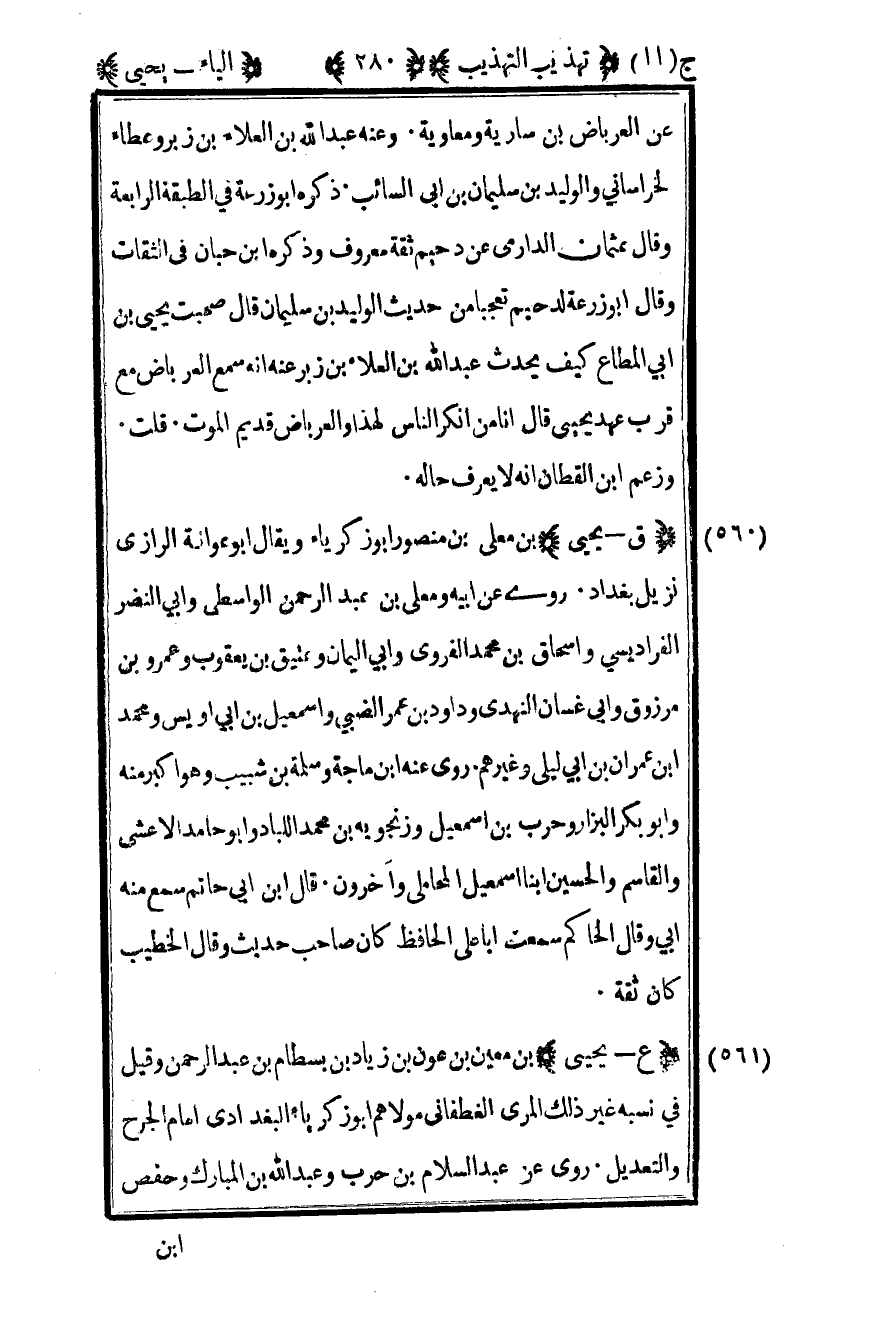 ج(١١) ﴿ تهذيب التهذيب ﴾ ﴿ ٢٨٠ ﴾ ﴿ الياء ـ يحيى ﴾
عن العرباض بن سارية ومعاوية · وعنه عبدالله بن العلاء بن زبر وعطاء
لخراساني والوليد بن سليمان بن ابى السائب · ذكره ابو زرعة في الطبقة الرابعة
وقال عثمان الدارمى عن دحيم ثقة معروف وذكره ابن حبان فى الثقات
وقال ابو زرعة لدحيم تعجبا من حديث الوليد بن سليمان قال صحبت يحيى بن
ابي المطاع كيف يحدث عبدالله بن العلاء بن زبر عنه انه سمع العرباض مع
قرب عهد يحيى قال انا من انكر الناس لهذا والعرباض قديم الموت · قلت ·
وزعم ابن القطان انه لا يعرف حاله ·
(٥٦٠) ﴿ ق ـ يحيى ﴾ بن معلى بن منصور ابو زكرياء ويقال ابو عوانة الرازى
نزيل بغداد · روى عن ابيه ومعلى بن عبد الرحمن الواسطى وابي النضر
الفراديسي واسحاق بن محمد الفروى وابي اليمان وعتيق بن يعقوب وعمرو بن
مرزوق وابى غسان النهدى وداود بن عمر الضبي واسمعيل بن ابي اويس ومحمد
ابن عمران بن ابي ليلى وغيرهم · روى عنه ابن ماجة وسلمة بن شبيب وهو اكبر منه
وابو بكر البزار وحرب بن اسمعيل وزنجويه بن محمد اللباد وابو حامد الاعشى
والقاسم والحسين ابنا اسمعيل المحاملى وآخرون · قال ابن ابي حاتم سمع منه
ابي وقال الحاكم سمعت ابا على الحافظ كان صاحب حديث وقال الخطيب
كان ثقة ·
(٥٦١) ﴿ ع ـ يحيى ﴾ بن معين بن عون بن زياد بن بسطام بن عبد الرحمن وقيل
في نسبه غير ذلك المرى الغطفانى مولاهم ابو زكرياء البغدادى امام الجرح
والتعديل · روى عن عبد السلام بن حرب وعبدالله بن المبارك وحفص
ابن